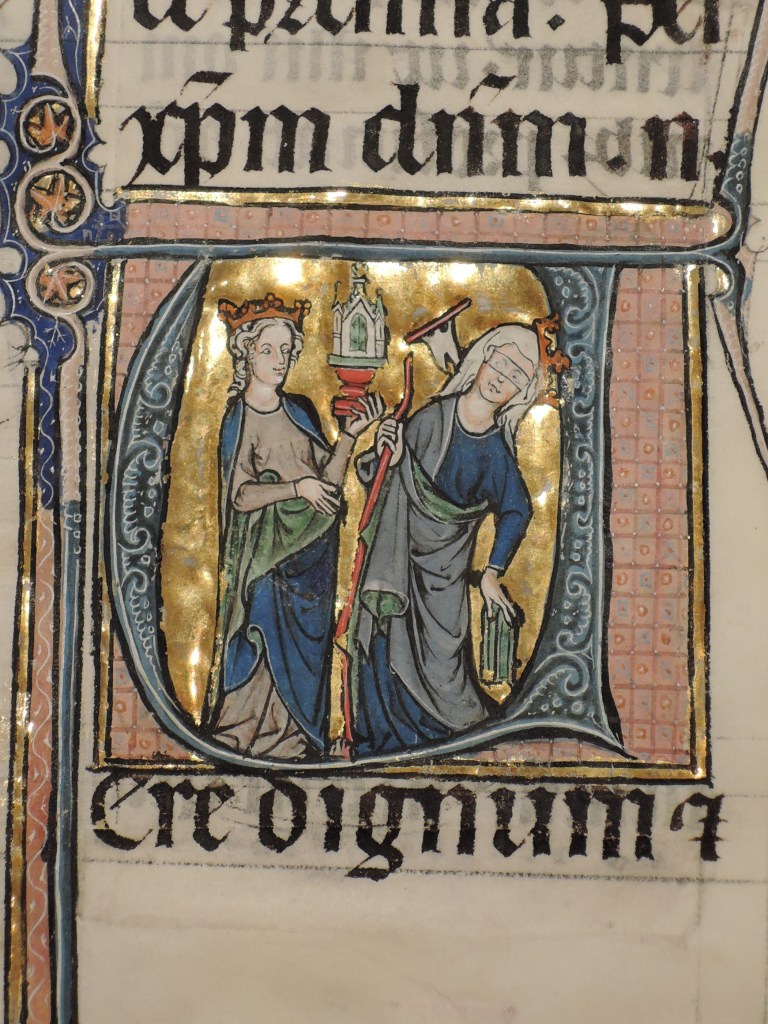 premia. per
xp̄m dn̄m. n.
Uere dignum ⁊